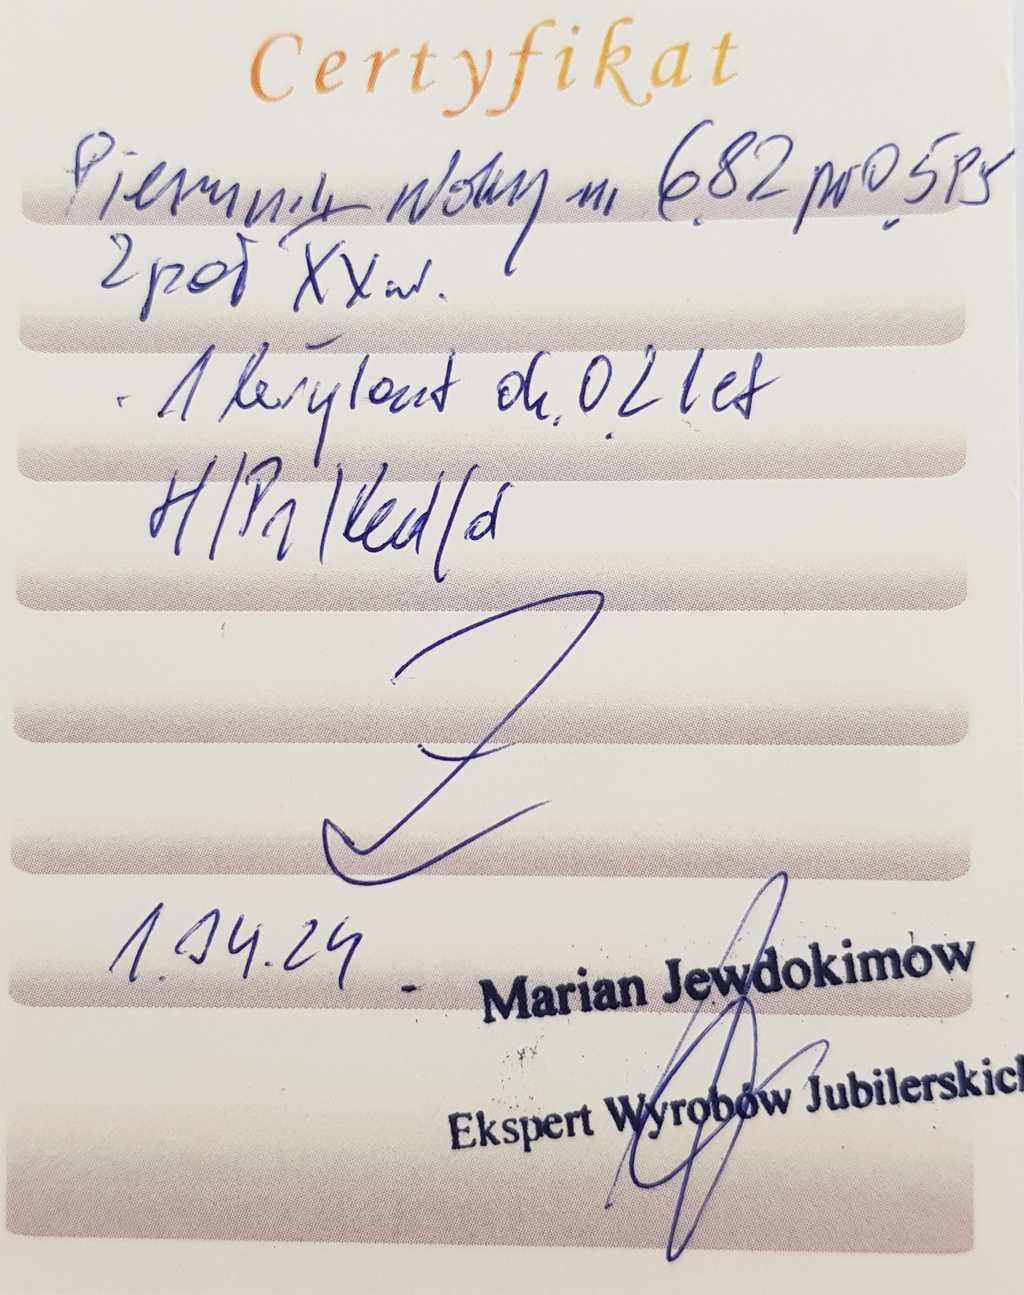 Certyfikat
Pierścionek złoty m 6.82 pr 0,585
2 poł XX w.
. 1 brylant ok. 0.21 ct
H/P1/ked/d
1.04.24
Marian Jewdokimow
Ekspert Wyrobów Jubilerskich